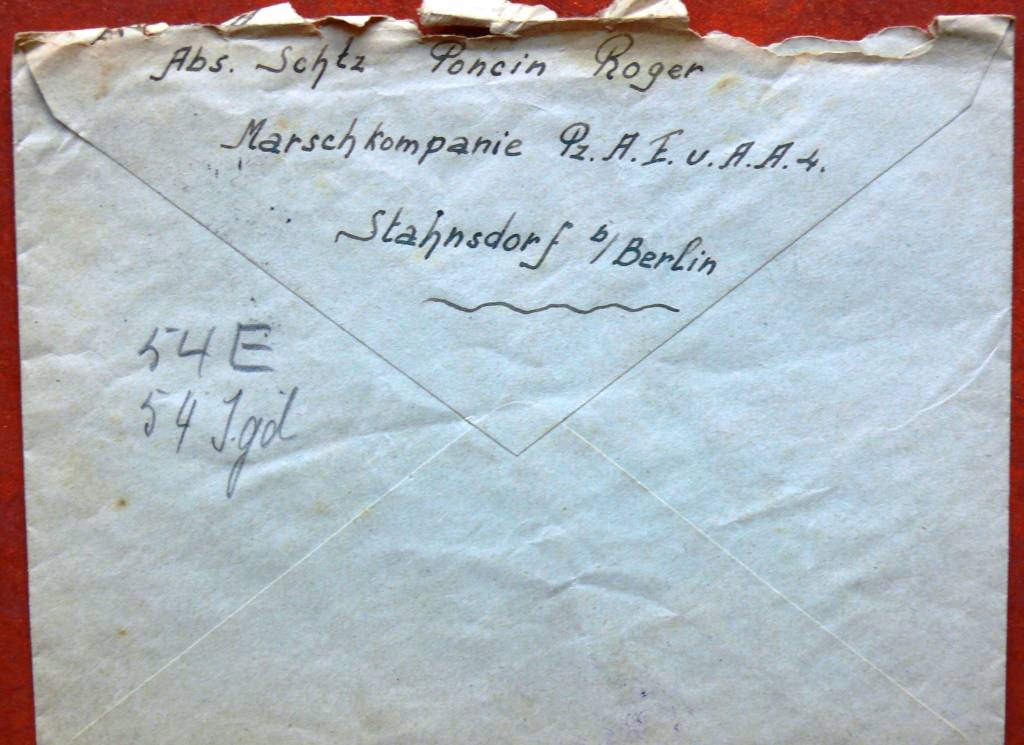 Abs. Schtz Poncin Roger
Marschkompanie Pz. A. E. u. A. A. 4.
Stahnsdorf b/Berlin
54 E
54 Jgd